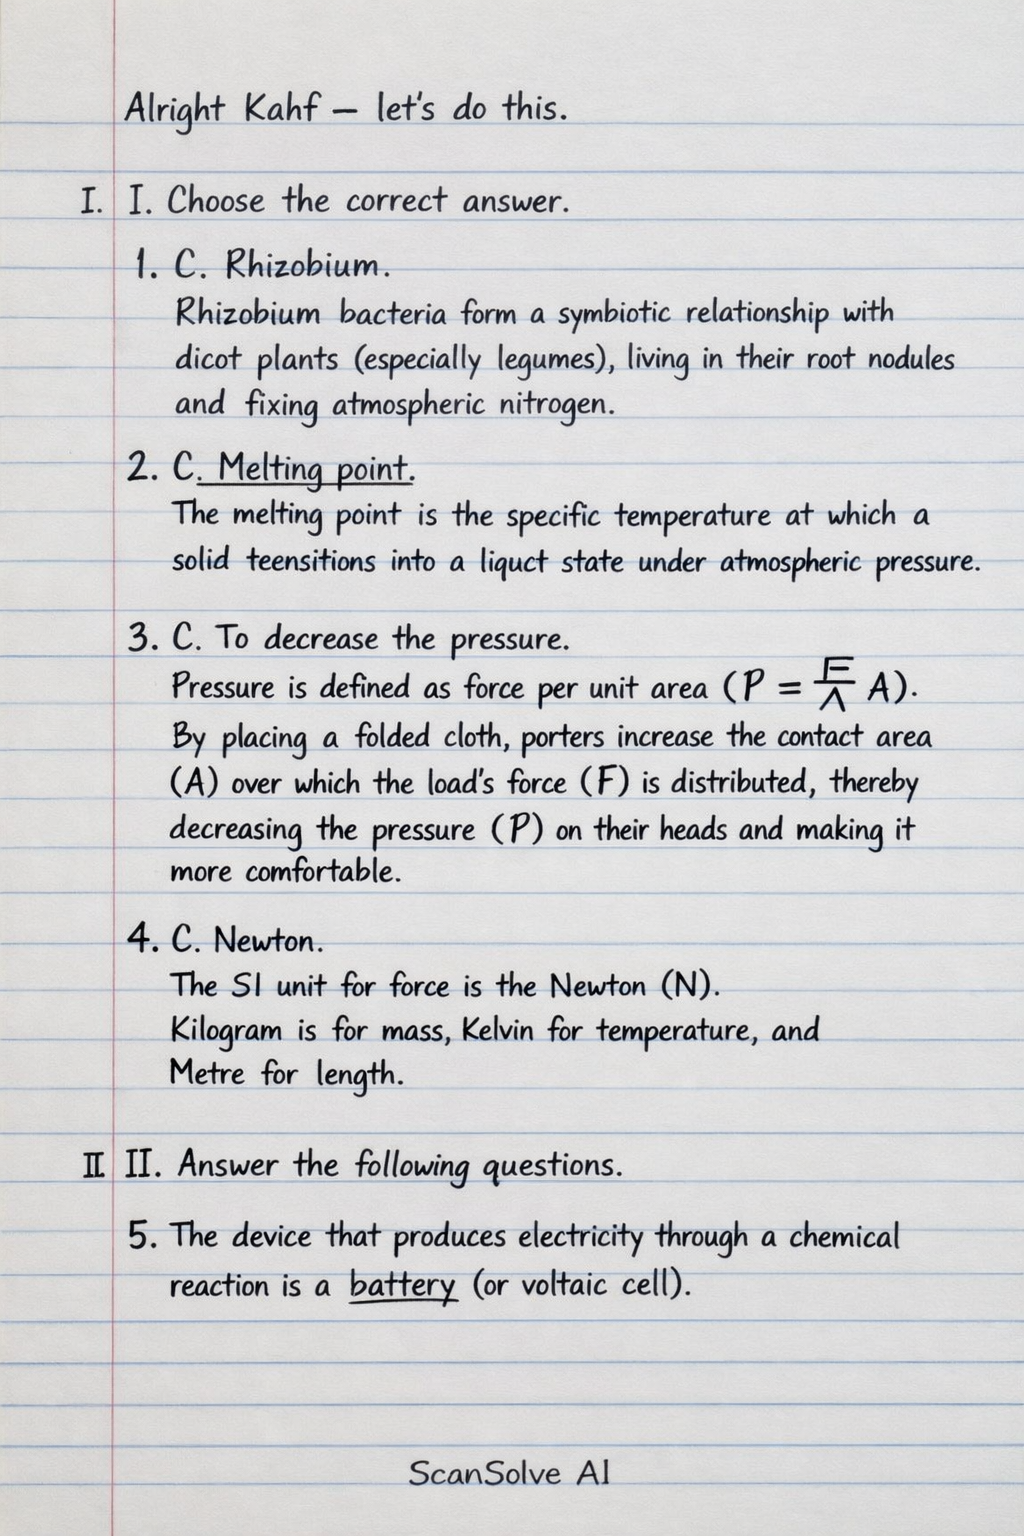 Alright Kahf — let's do this.
I. I. Choose the correct answer.
1. C. Rhizobium.
Rhizobium bacteria form a symbiotic relationship with
dicot plants (especially legumes), living in their root nodules
and fixing atmospheric nitrogen.
2. C. Melting point.
The melting point is the specific temperature at which a
solid teensitions into a liquct state under atmospheric pressure.
3. C. To decrease the pressure.
Pressure is defined as force per unit area (P = F/A A).
By placing a folded cloth, porters increase the contact area
(A) over which the load's force (F) is distributed, thereby
decreasing the pressure (P) on their heads and making it
more comfortable.
4. C. Newton.
The SI unit for force is the Newton (N).
Kilogram is for mass, Kelvin for temperature, and
Metre for length.
II II. Answer the following questions.
5. The device that produces electricity through a chemical
reaction is a battery (or voltaic cell).
ScanSolve AI